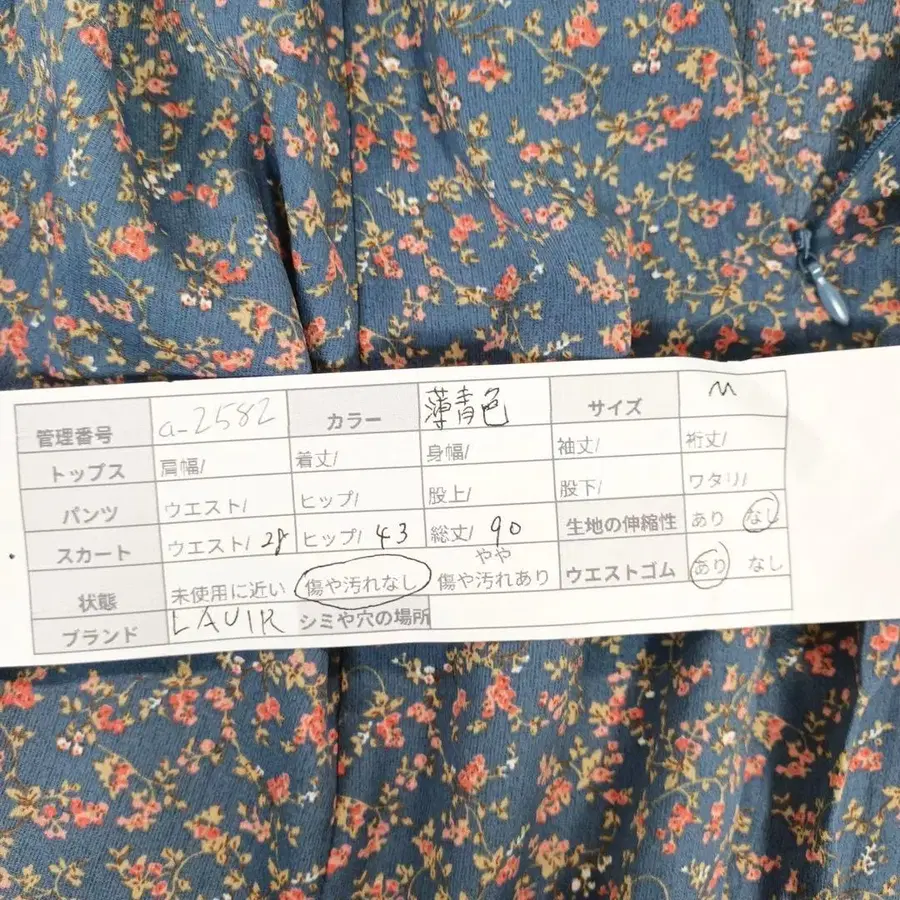 管理番号 a-2582 カラー 薄青色 サイズ M
トップス 肩幅/ 着丈/ 身幅/ 袖丈/ 裄丈/
パンツ ウエスト/ ヒップ/ 股上/ 股下/ ワタリ/
スカート ウエスト/ 28 ヒップ/ 43 総丈/ 90 生地の伸縮性 あり なし
状態 未使用に近い 傷や汚れなし やや傷や汚れあり ウエストゴム あり なし
ブランド LAVIR シミや穴の場所